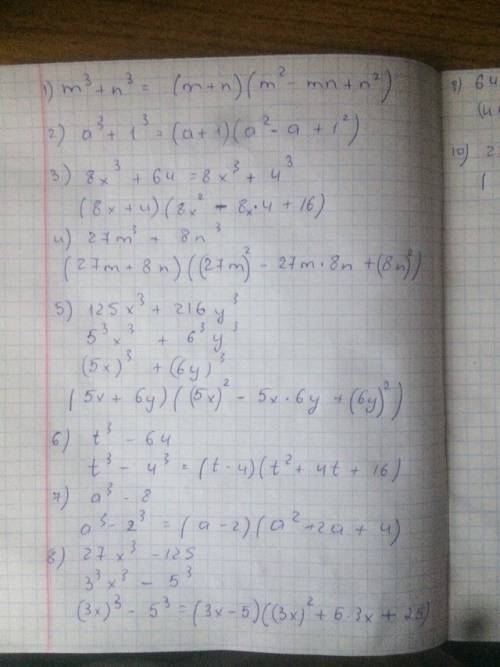 1) m³ + n³ = (m+n)(m² - mn + n²)
2) a³ + 1³ = (a+1)(a² - a + 1²)
3) 8x³ + 64 = 8x³ + 4³
(8x+4)(8x² - 8x·4 + 16)
4) 27m³ + 8n³
(27m + 8n)((27m)² - 27m·8n + (8n)²)
5) 125x³ + 216y³
5³x³ + 6³y³
(5x)³ + (6y)³
(5x + 6y)((5x)² - 5x·6y + (6y)²)
6) t³ - 64
t³ - 4³ = (t-4)(t² + 4t + 16)
7) a³ - 8
a³ - 2³ = (a-2)(a² + 2a + 4)
8) 27x³ - 125
3³x³ - 5³
(3x)³ - 5³ = (3x-5)((3x)² + 5·3x + 25)
9) 64
10)